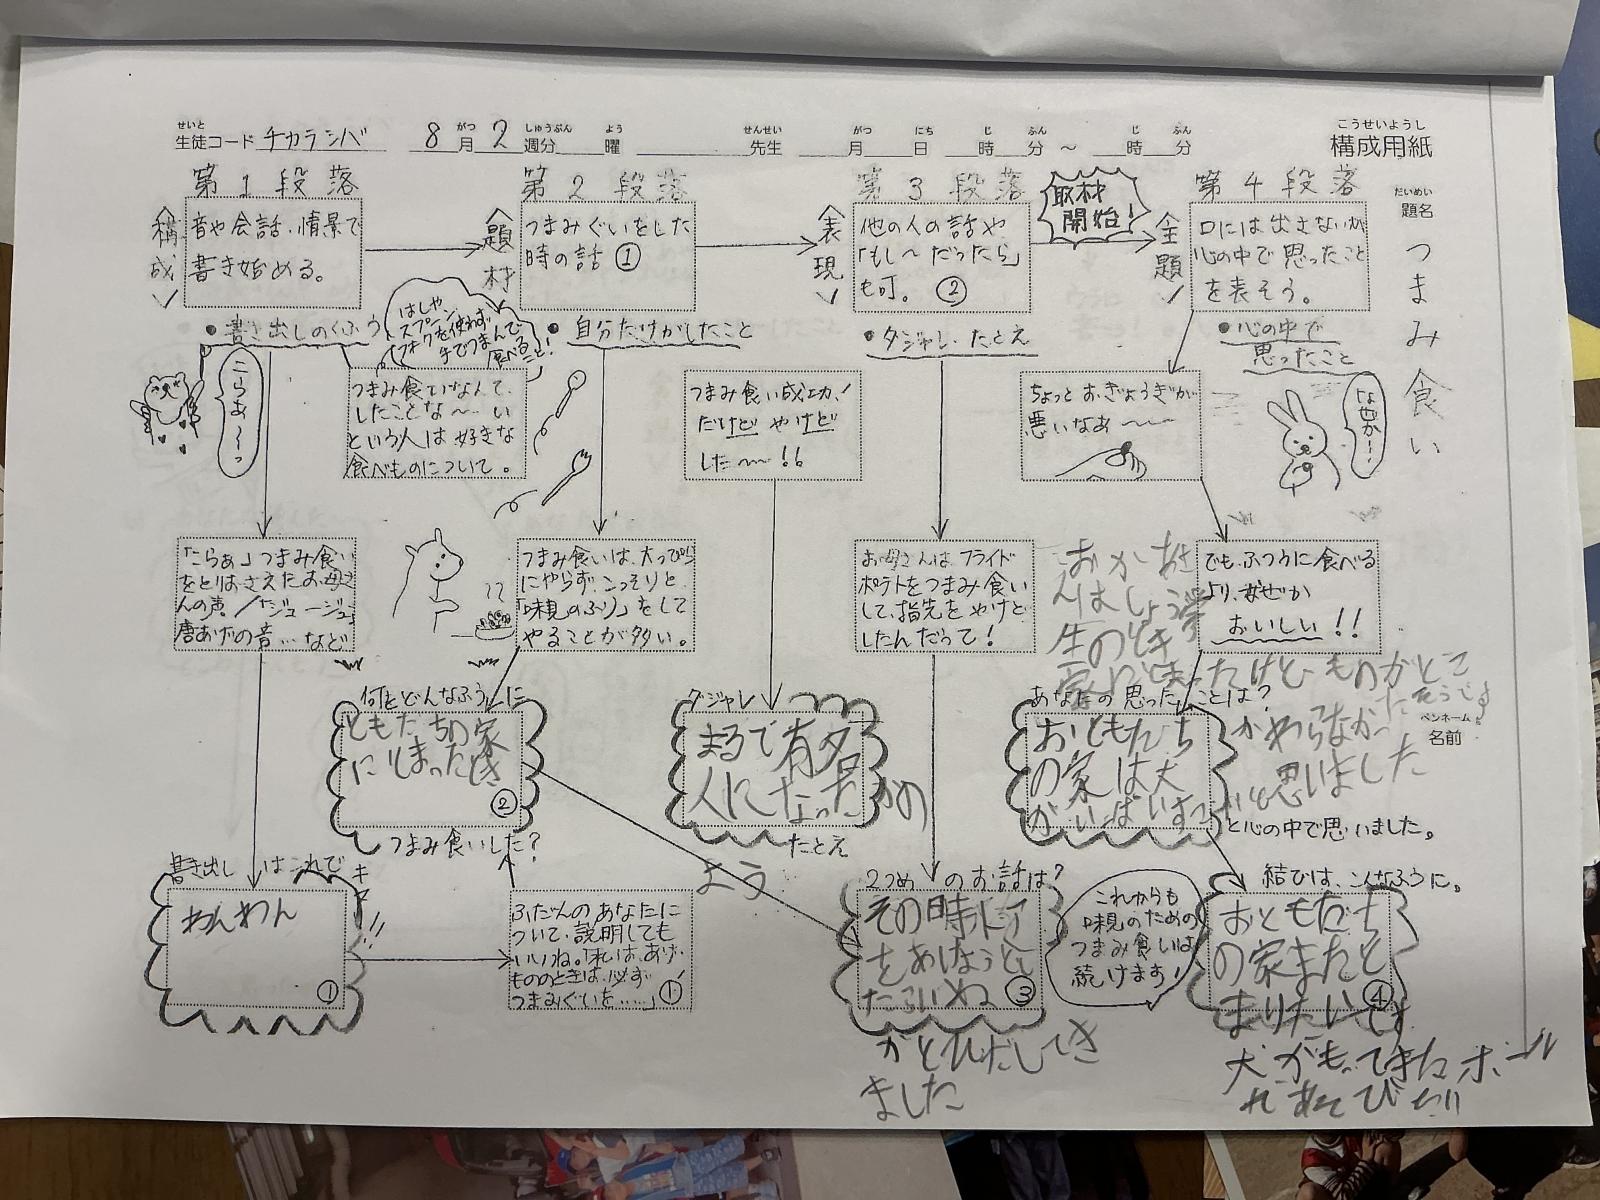 せいと
生徒コード チカラシバ
がつ しゅうぶん よう
8月 2週分 曜
せんせい
先生
がつ にち じ ふん じ ふん
月 日 時 分 ~ 時 分
こうせいようし
構成用紙
だいめい
題名
つまみ食い
ペンネーム
名前
第1段落
<構成>
音や会話、情景で
書き始める。
●書き出しのくふう
こらあ~~っ
「こらぁ」つまみ食い
をとりおさえたお母さ
んの声。/「ジュージュー」
唐あげの音…など
書き出しはこれで
キマリ!!
わんわん
①
第2段落
<題材>
つまみぐいをした
時の話 ①
はしや
スプーン、
フォークを使わず
手でつまんで
食べる
こと!
●自分だけがしたこと
つまみ食いなんて、
したことな~~い
という人は好きな
食べものについて。
つまみ食いは、大っぴら
にやらず、こっそりと、
「味見のふり」をして
やることが多い。
何をどんなふうに
ともだちの家
にとまったとき
②
つまみ食いした?
ふだんのあなたに
ついて、説明しても
いいね。「私は、あげ
もののときは、必ず
つまみぐいを……」
①
第3段落
<表現>
他の人の話や
「もし~だったら」
も可。 ②
取材
開始!
●ダジャレ・たとえ
つまみ食い成功!
だけど やけど
した~~!!
お母さんは、フライド
ポテトをつまみ食い
して、指先をやけど
したんだって!
ダジャレ
まるで有名
人になったかの
よう
たとえ
2つめのお話は?
その時ドア
をあけようとし
たらいぬ
③
がとびだしてき
ました
第4段落
<全題>
口には出さないが
心の中で思ったこと
を表そう。
●心の中で
思ったこと
ちょっとおぎょうぎが
悪いなあ~~
なぜか~~
でも、ふつうに食べる
より、なぜか
おいしい!!
おかあさ
んはしょう学
生のとき
家にとまったけど、ものがとこ
かわらなかったそうです
あなたの思ったことは?
おともだち
の家は犬
がいっぱいすごいと思いました
と心の中で思いました。
これからも
味見のための
つまみ食いは
続けます!
結びは、こんなふうに。
おともだち
の家またと
まりたいです
④
犬がもってきたボール